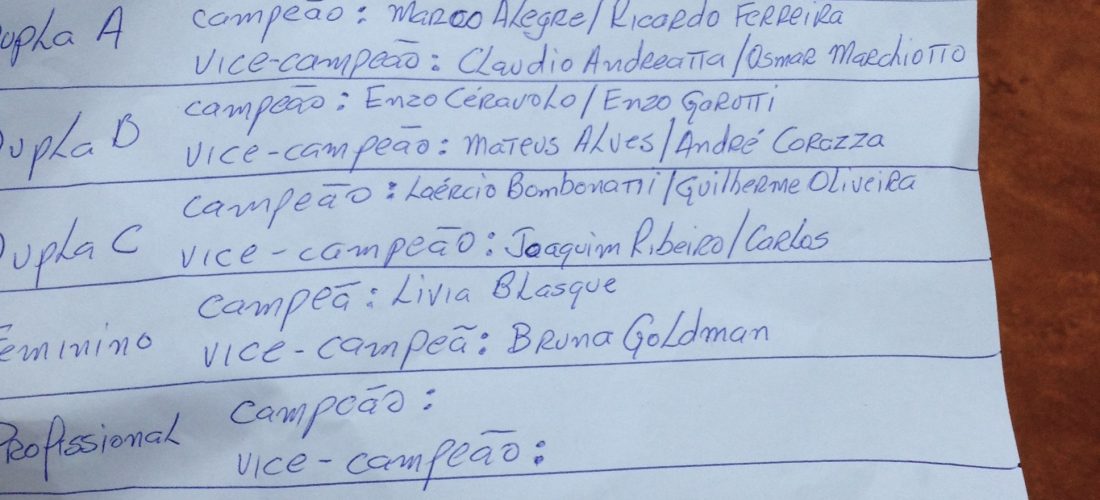 Dupla A campeão: Marco Alegre/Ricardo Ferreira
vice-campeão: Claudio Andreatta/Osmar Marchiotto
Dupla B campeão: Enzo Céravolo/Enzo Gorotti
vice-campeão: Mateus Alves/André Corazza
Dupla C campeão: Laércio Bombonatti/Guilherme Oliveira
vice-campeão: Joaquim Ribeiro/Carlos
Feminino campeã: Livia Blasque
vice-campeã: Bruna Goldman
Profissional campeão:
vice-campeão: